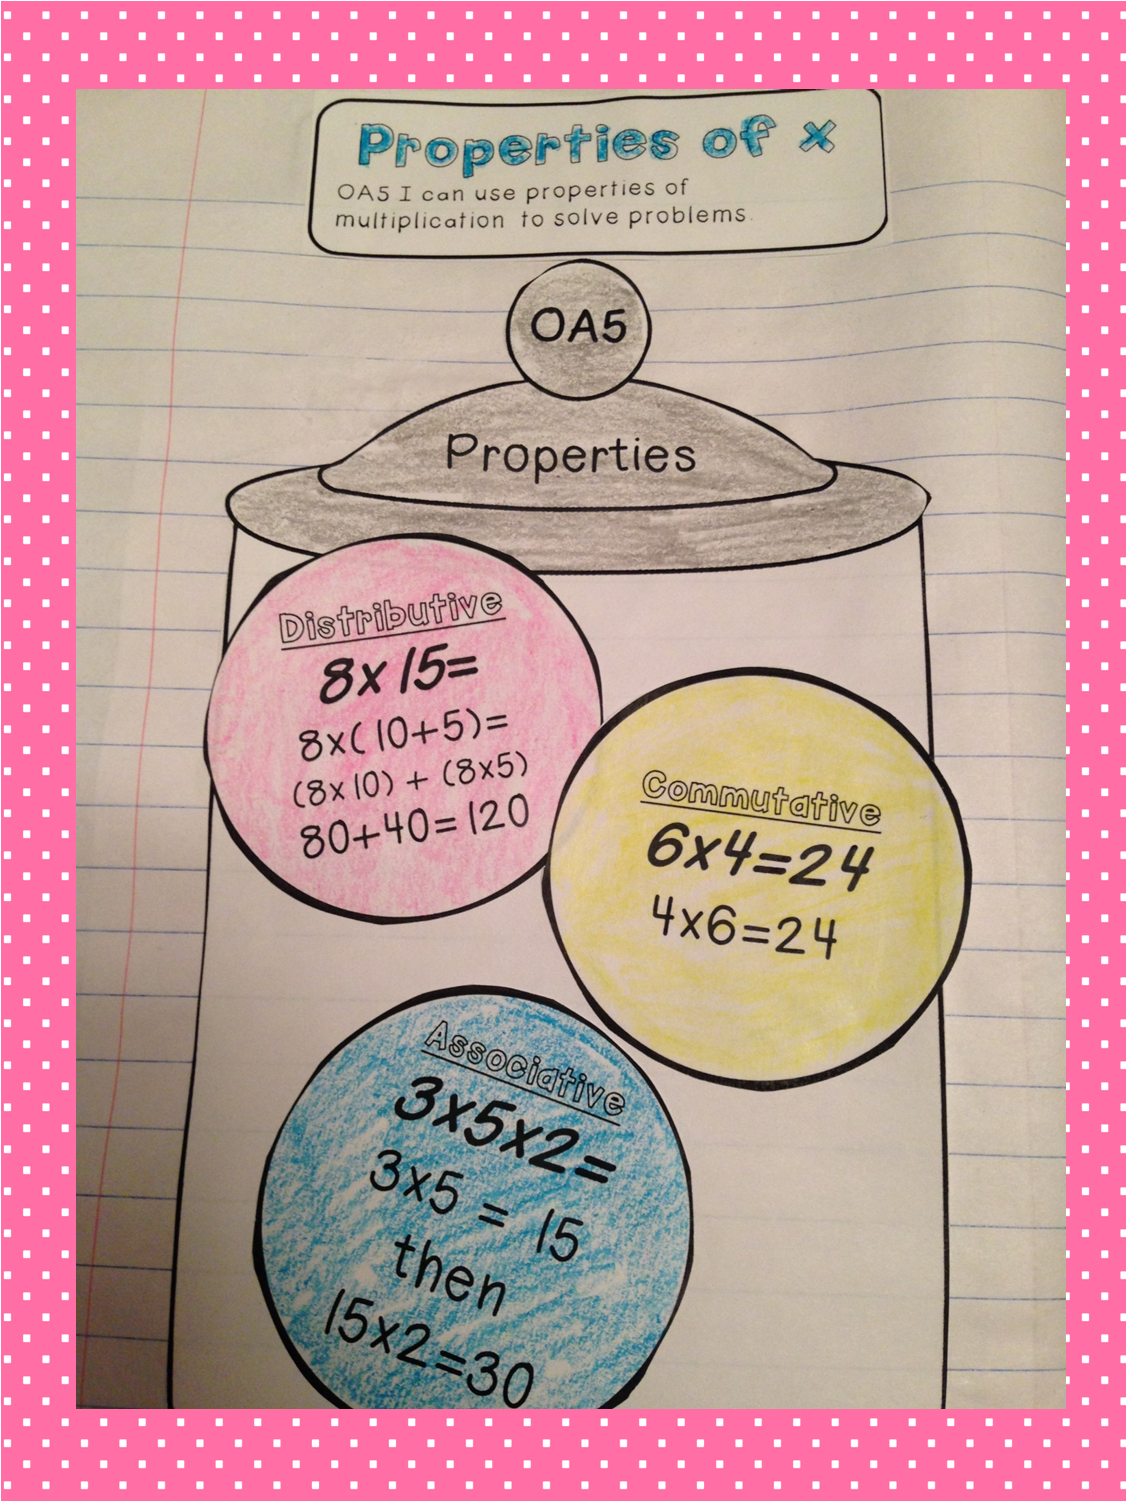 Properties of x
OA5 I can use properties of
multiplication to solve problems.
OA5
Properties
Distributive
8x15=
8x(10+5)=
(8x10) + (8x5)
80+40=120
Commutative
6x4=24
4x6=24
Associative
3x5x2=
3x5 = 15
then
15x2=30